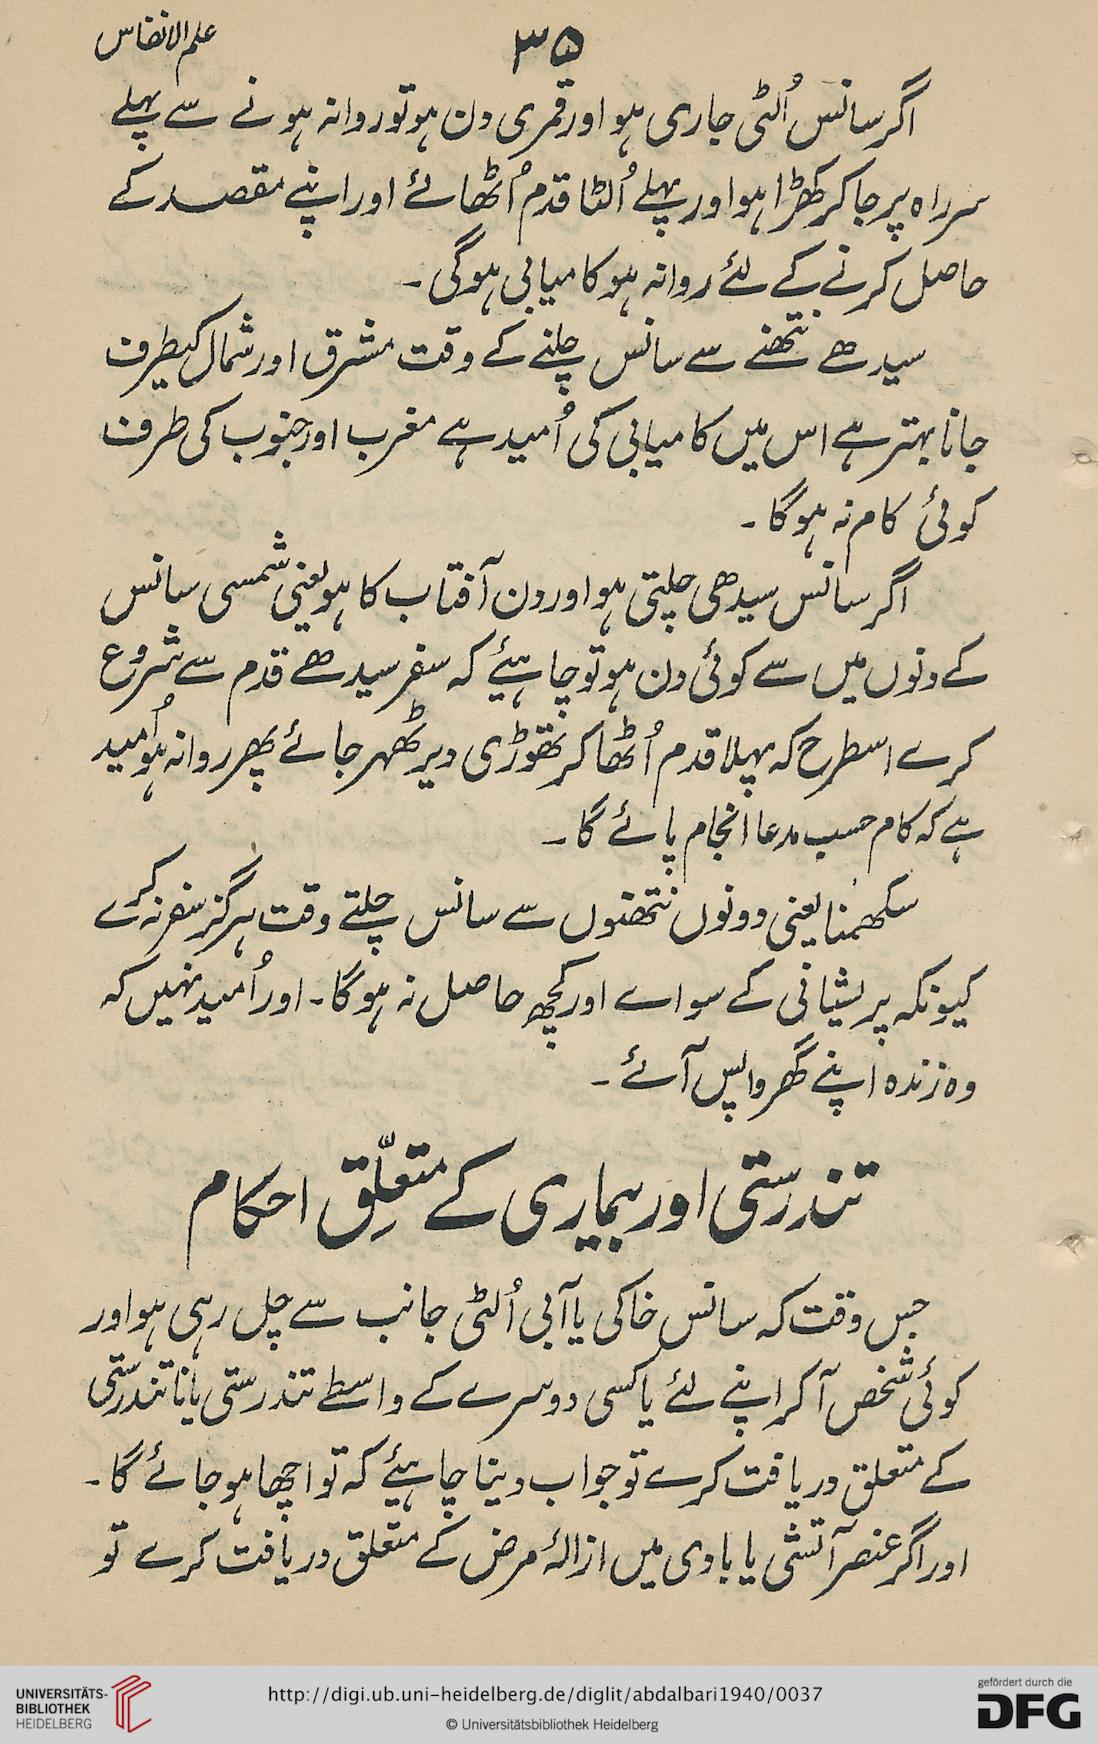 علم الانفاس
۳۵
اگر سانس اُلٹی جاری ہو اور قمری دن ہو تو روانہ ہونے سے پہلے
سرراہ پر جا کر کھڑا ہو اور پہلے اُلٹا قدم اُٹھائے اور اپنے مقصد کے
حاصل کرنے کے لئے روانہ ہو کامیابی ہوگی۔
سیدھے نتھنے سے سانس چلنے کے وقت مشرق اور شمال کیطرف
جانا بہتر ہے اس میں کامیابی کی اُمید ہے مغرب اور جنوب کی طرف
کوئی کام نہ ہوگا۔
اگر سانس سیدھی چلتی ہو اور دن آفتاب کا ہو یعنی شمسی سانس
کے دنوں میں سے کوئی دن ہو تو چاہیئے کہ سفر سیدھے قدم سے شروع
کرے اسطرح کہ پہلا قدم اُٹھا کر تھوڑی دیر ٹھہر جائے پھر روانہ ہو اُمید
ہے کہ کام حسب مدعا انجام پائے گا۔
سکھمنا یعنی دونوں نتھنوں سے سانس چلتے وقت ہرگز سفر نہ کرے
کیونکہ پریشانی کے سواے اور کچھ حاصل نہ ہوگا۔ اور اُمید نہیں کہ
وہ زندہ اپنے گھر واپس آئے۔
تندرستی اور بیماری کے متعلّق احکام
جس وقت کہ سانس خاکی یا آبی اُلٹی جانب سے چل رہی ہو اور
کوئی شخص آکر اپنے لئے یا کسی دوسرے کے واسطے تندرستی یا ناتندرستی
کے متعلق دریافت کرے تو جواب دینا چاہیئے کہ تو اچھا ہو جائے گا۔
اور اگر عنصر آتشی یا بادی میں ازالۂ مرض کے متعلق دریافت کرے تو
UNIVERSITÄTS-
BIBLIOTHEK
HEIDELBERG
http://digi.ub.uni-heidelberg.de/diglit/abdalbari1940/0037
© Universitätsbibliothek Heidelberg
gefördert durch die
DFG